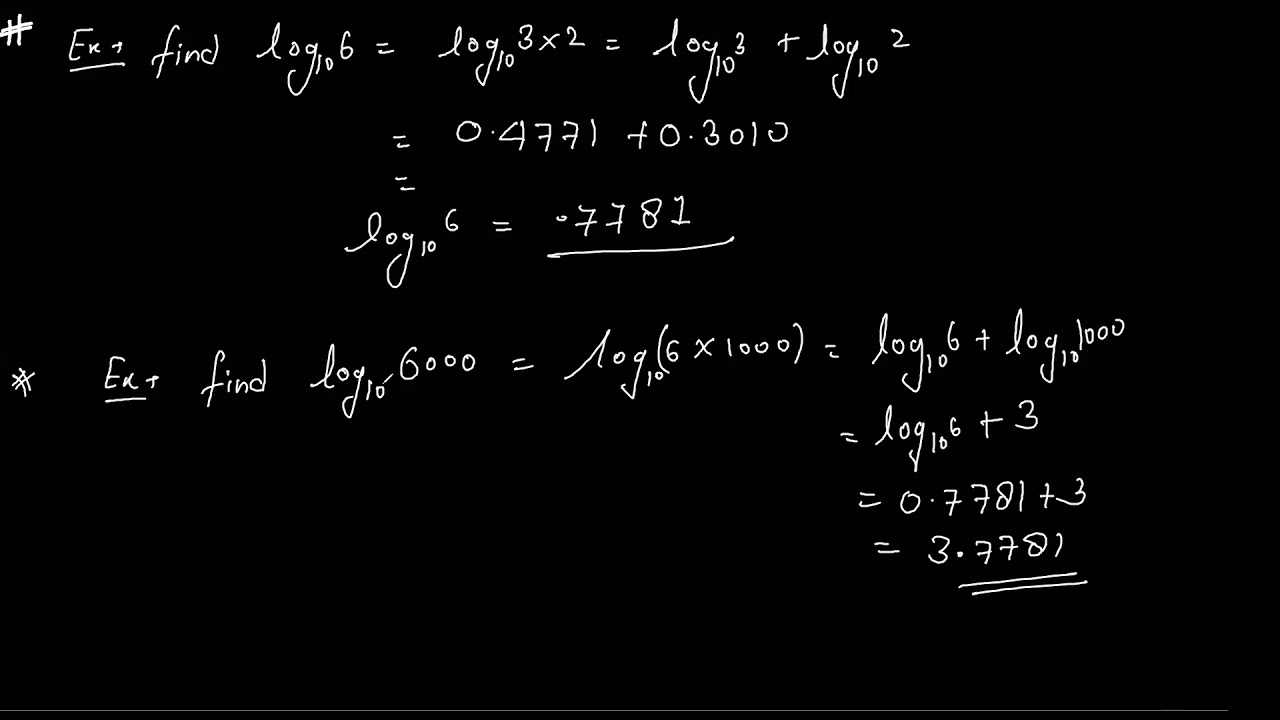 # Ex→ find log₁₀6 = log₁₀3×2 = log₁₀3 + log₁₀2
= 0.4771 + 0.3010
=
log₁₀6 = .7781
* Ex→ find log₁₀6000 = log₁₀(6×1000) = log₁₀6 + log₁₀1000
= log₁₀6 + 3
= 0.7781+3
= 3.7781